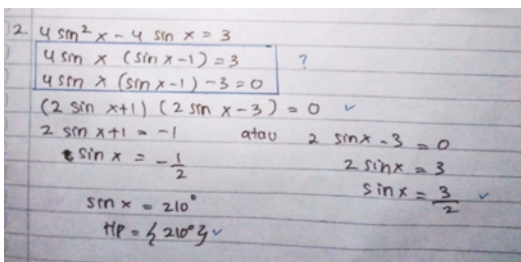 2. 4 sin² x - 4 sin x = 3
4 sin x (sin x - 1) = 3 ?
4 sin x (sin x - 1) - 3 = 0
(2 sin x + 1) (2 sin x - 3) = 0 ✓
2 sin x + 1 = -1 atau 2 sin x - 3 = 0
sin x = -1/2 2 sin x = 3
sin x = 3/2 ✓
sin x = 210°
HP = {210°} ✓